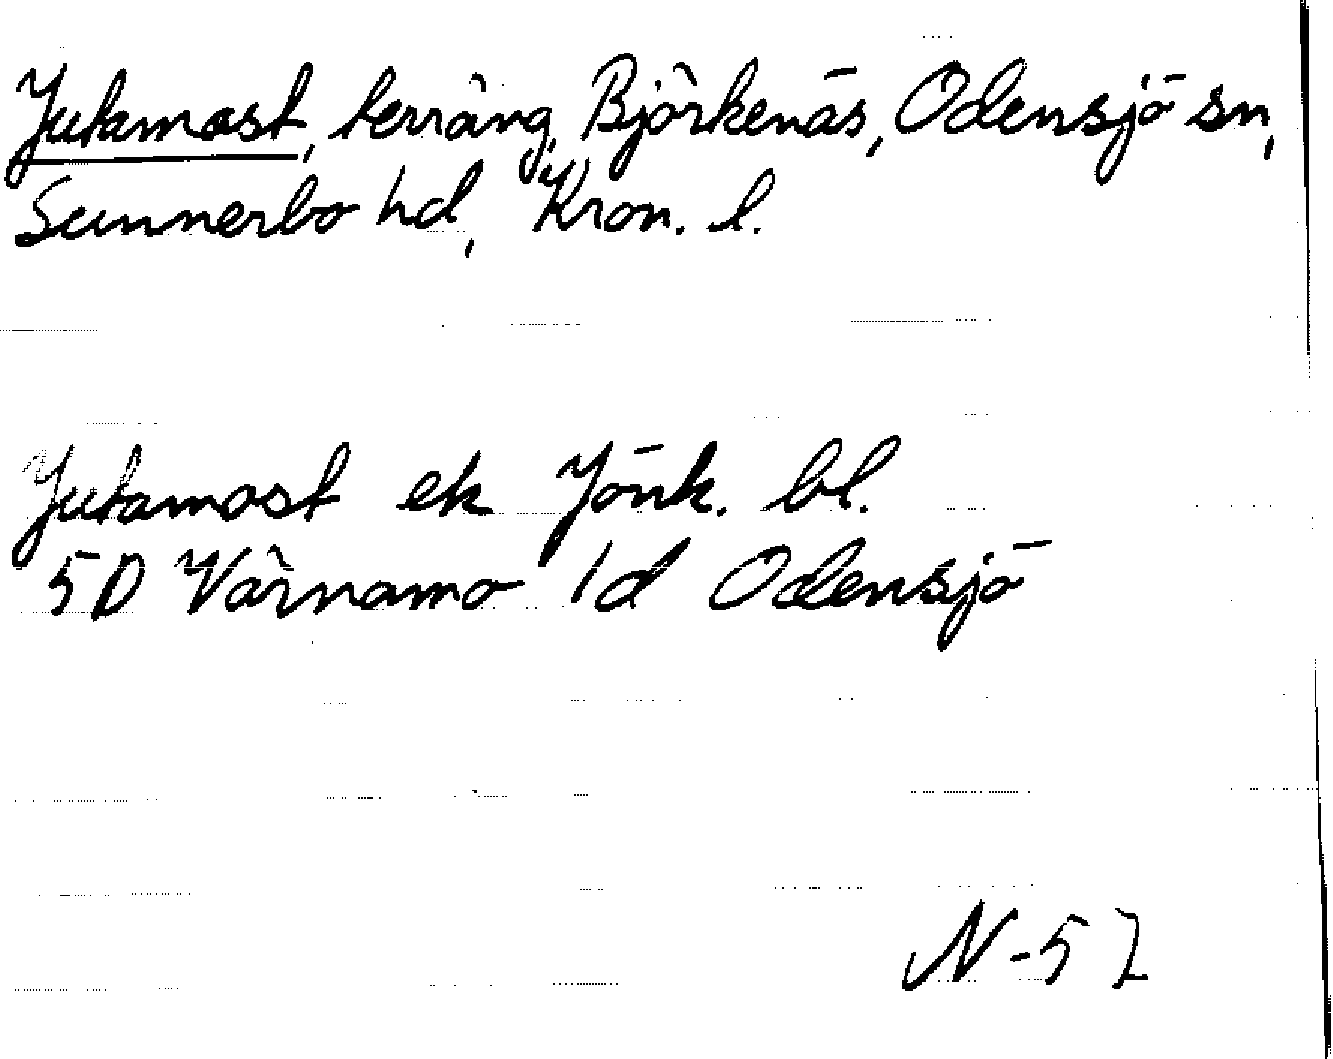 Jutamast, terräng, Björkenäs, Odensjö sn,
Sunnerbo hd, Kron. l.
Jutamast ek Jönk. bl.
5D Värnamo 1d Odensjö
N-52